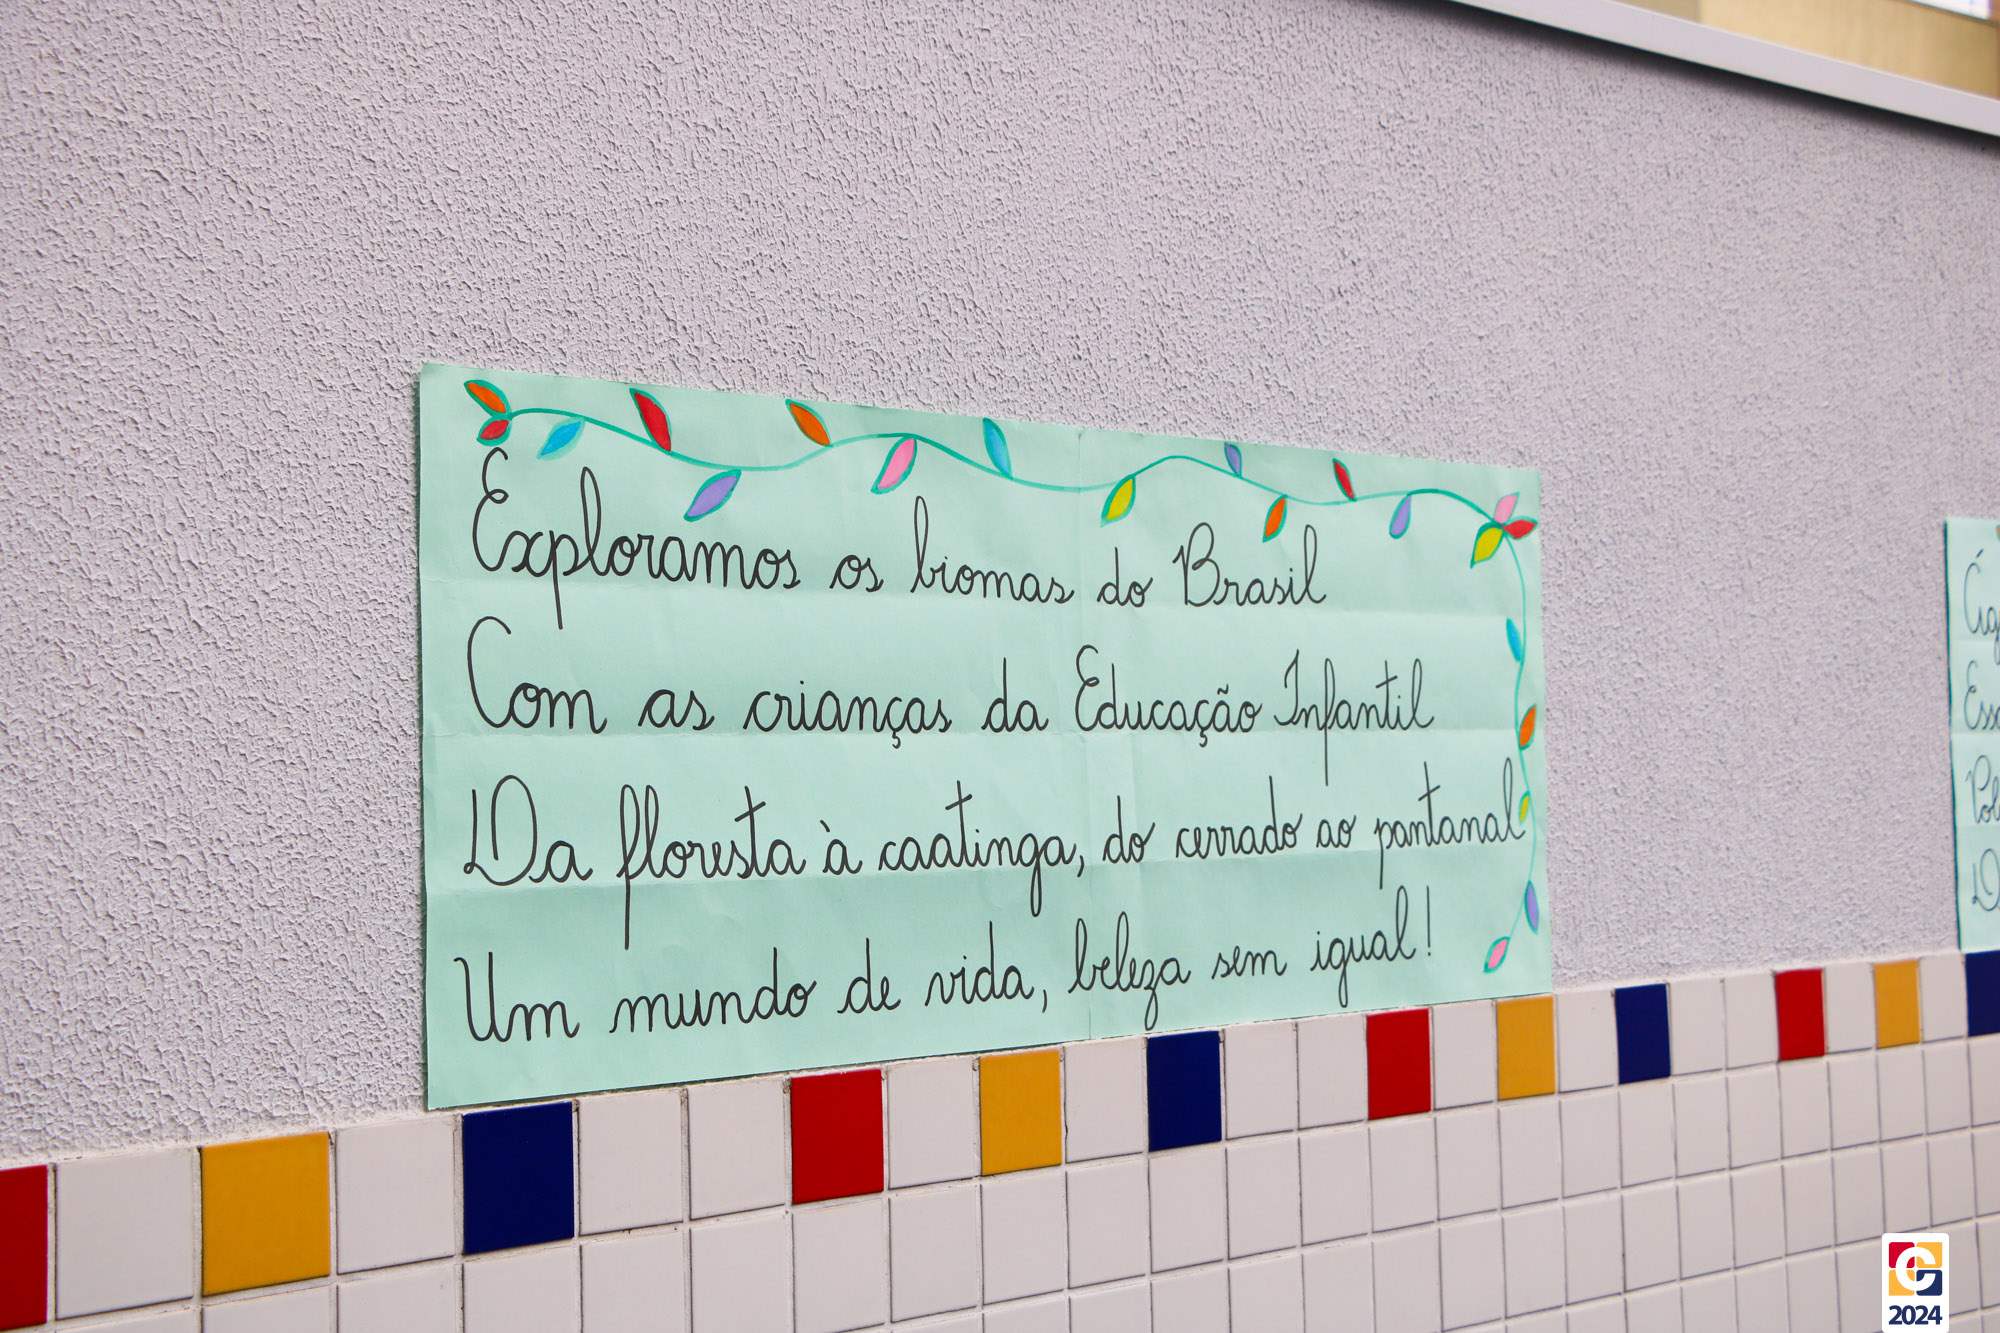 Exploramos os biomas do Brasil
Com as crianças da Educação Infantil
Da floresta à caatinga, do cerrado ao pantanal
Um mundo de vida, beleza sem igual!
2024